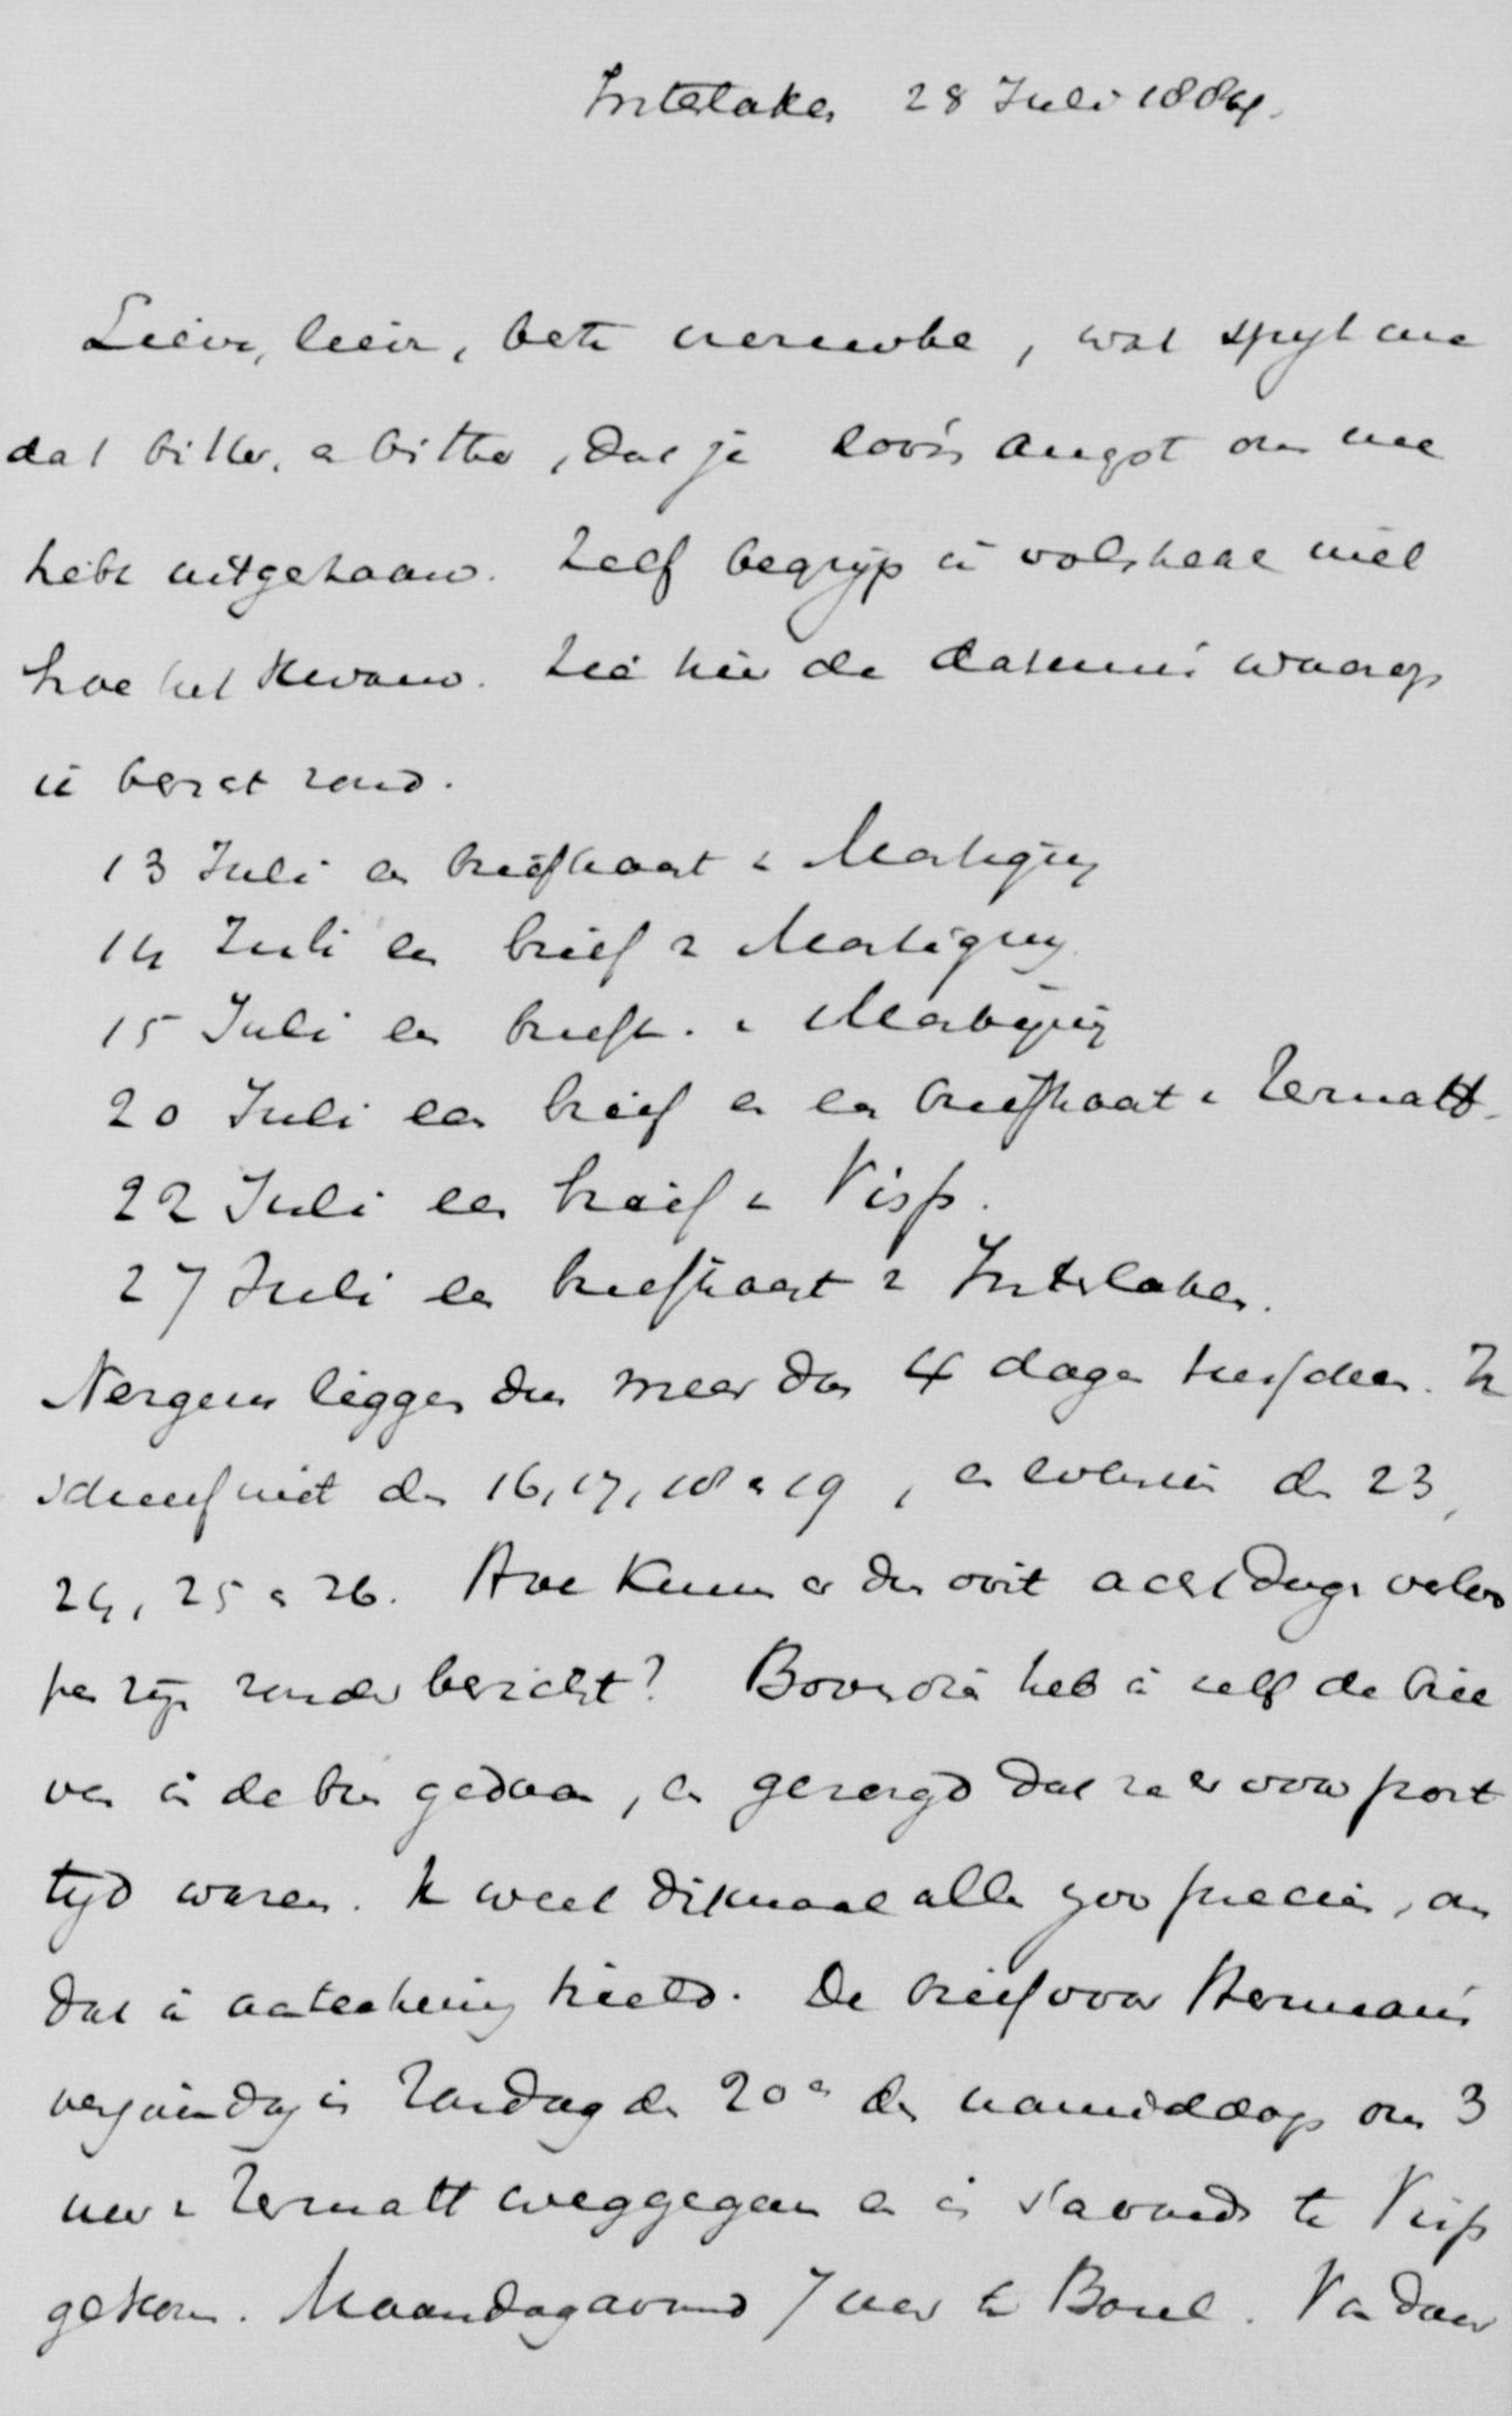 Interlaken 28 Juli 1884.
Lieve, lieve, beste, wat spijt me
dat bitter, en bitter, dat je zoo'n angst om me
hebt uitgestaan. Zelf begrijp ik volstrekt niet
hoe het kwam. Zie hier de datums waarop
ik bericht zond.
13 Juli een briefkaart u Martigny
14 Juli een brief u Martigny.
15 Juli een briefk. u Martigny
20 Juli een brief en een briefkaart u Zermatt.
22 Juli een brief u Visp.
27 Juli een briefkaart u Interlaken.
Nergens liggen dus meer dan 4 dagen tusschen. Ik
schreef niet den 16, 17, 18 en 19, en evenmin den 23,
24, 25 en 26. Hoe kunnen er dus ooit acht dagen verloo
pen zijn zonder bericht? Bovendien heb ik zelf de brie
ven in de bus gedaan, en gezorgd dat ze er voor post
tijd waren. Ik weet ditmaal alles zoo precies, om
dat ik aanteekening hield. De brief voor Hermans
verjaardag is Zondag den 20en des namiddags om 3
uur u Zermatt weggegaan en is s'avonds te Visp
gekomen. Maandagavond 7 uur te Bazel. Van daar